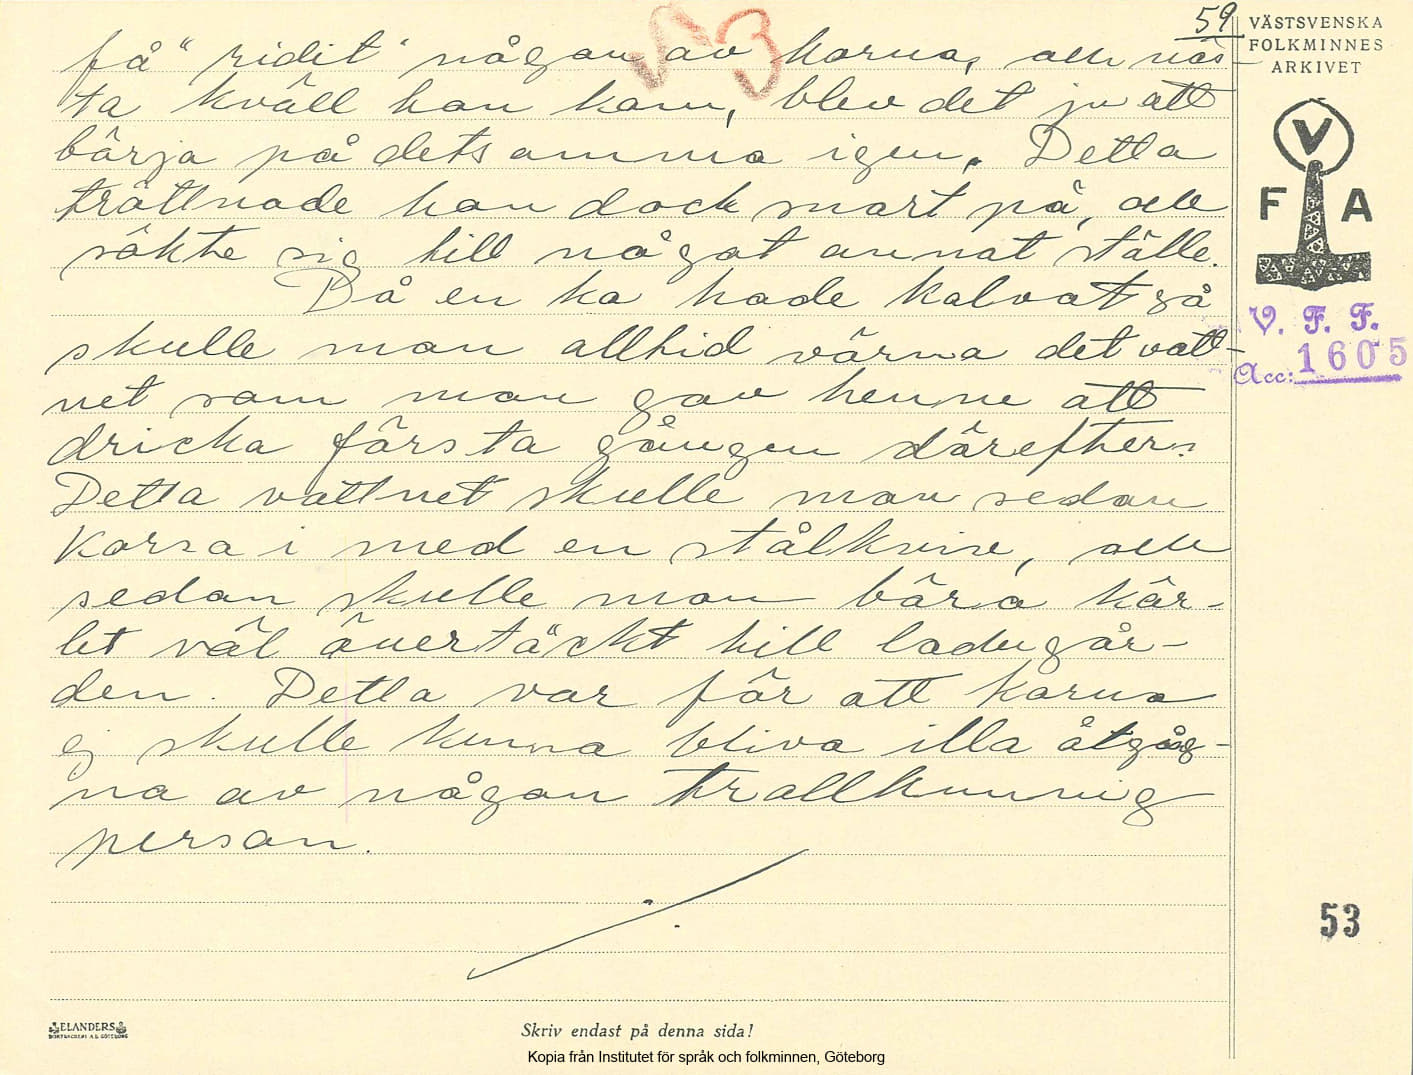 59
VÄSTSVENSKA
FOLKMINNES
ARKIVET
få "ridit" någon av korna, och näs-
ta kväll han kom, blev det ju att
börja på detsamma igen. Detta
tröttnade han dock snart på, och
sökte sig till något annat ställe.
Då en ko hade kalvat så
skulle man alltid värma det vatt-
net som man gav henne att
dricka första gången därefter.
Detta vattnet skulle man sedan
korsa i med en stålkniv, och
sedan skulle man bära kär-
let väl övertäckt till ladugår-
den. Detta var för att korna
ej skulle kunna bliva illa åtgång-
na av någon trollkunnig
person.
V
F A
V. F. F.
Acc: 1605
53
ELANDERS
BOKTRYCKERI A.B. GÖTEBORG
Skriv endast på denna sida!
Kopia från Institutet för språk och folkminnen, Göteborg